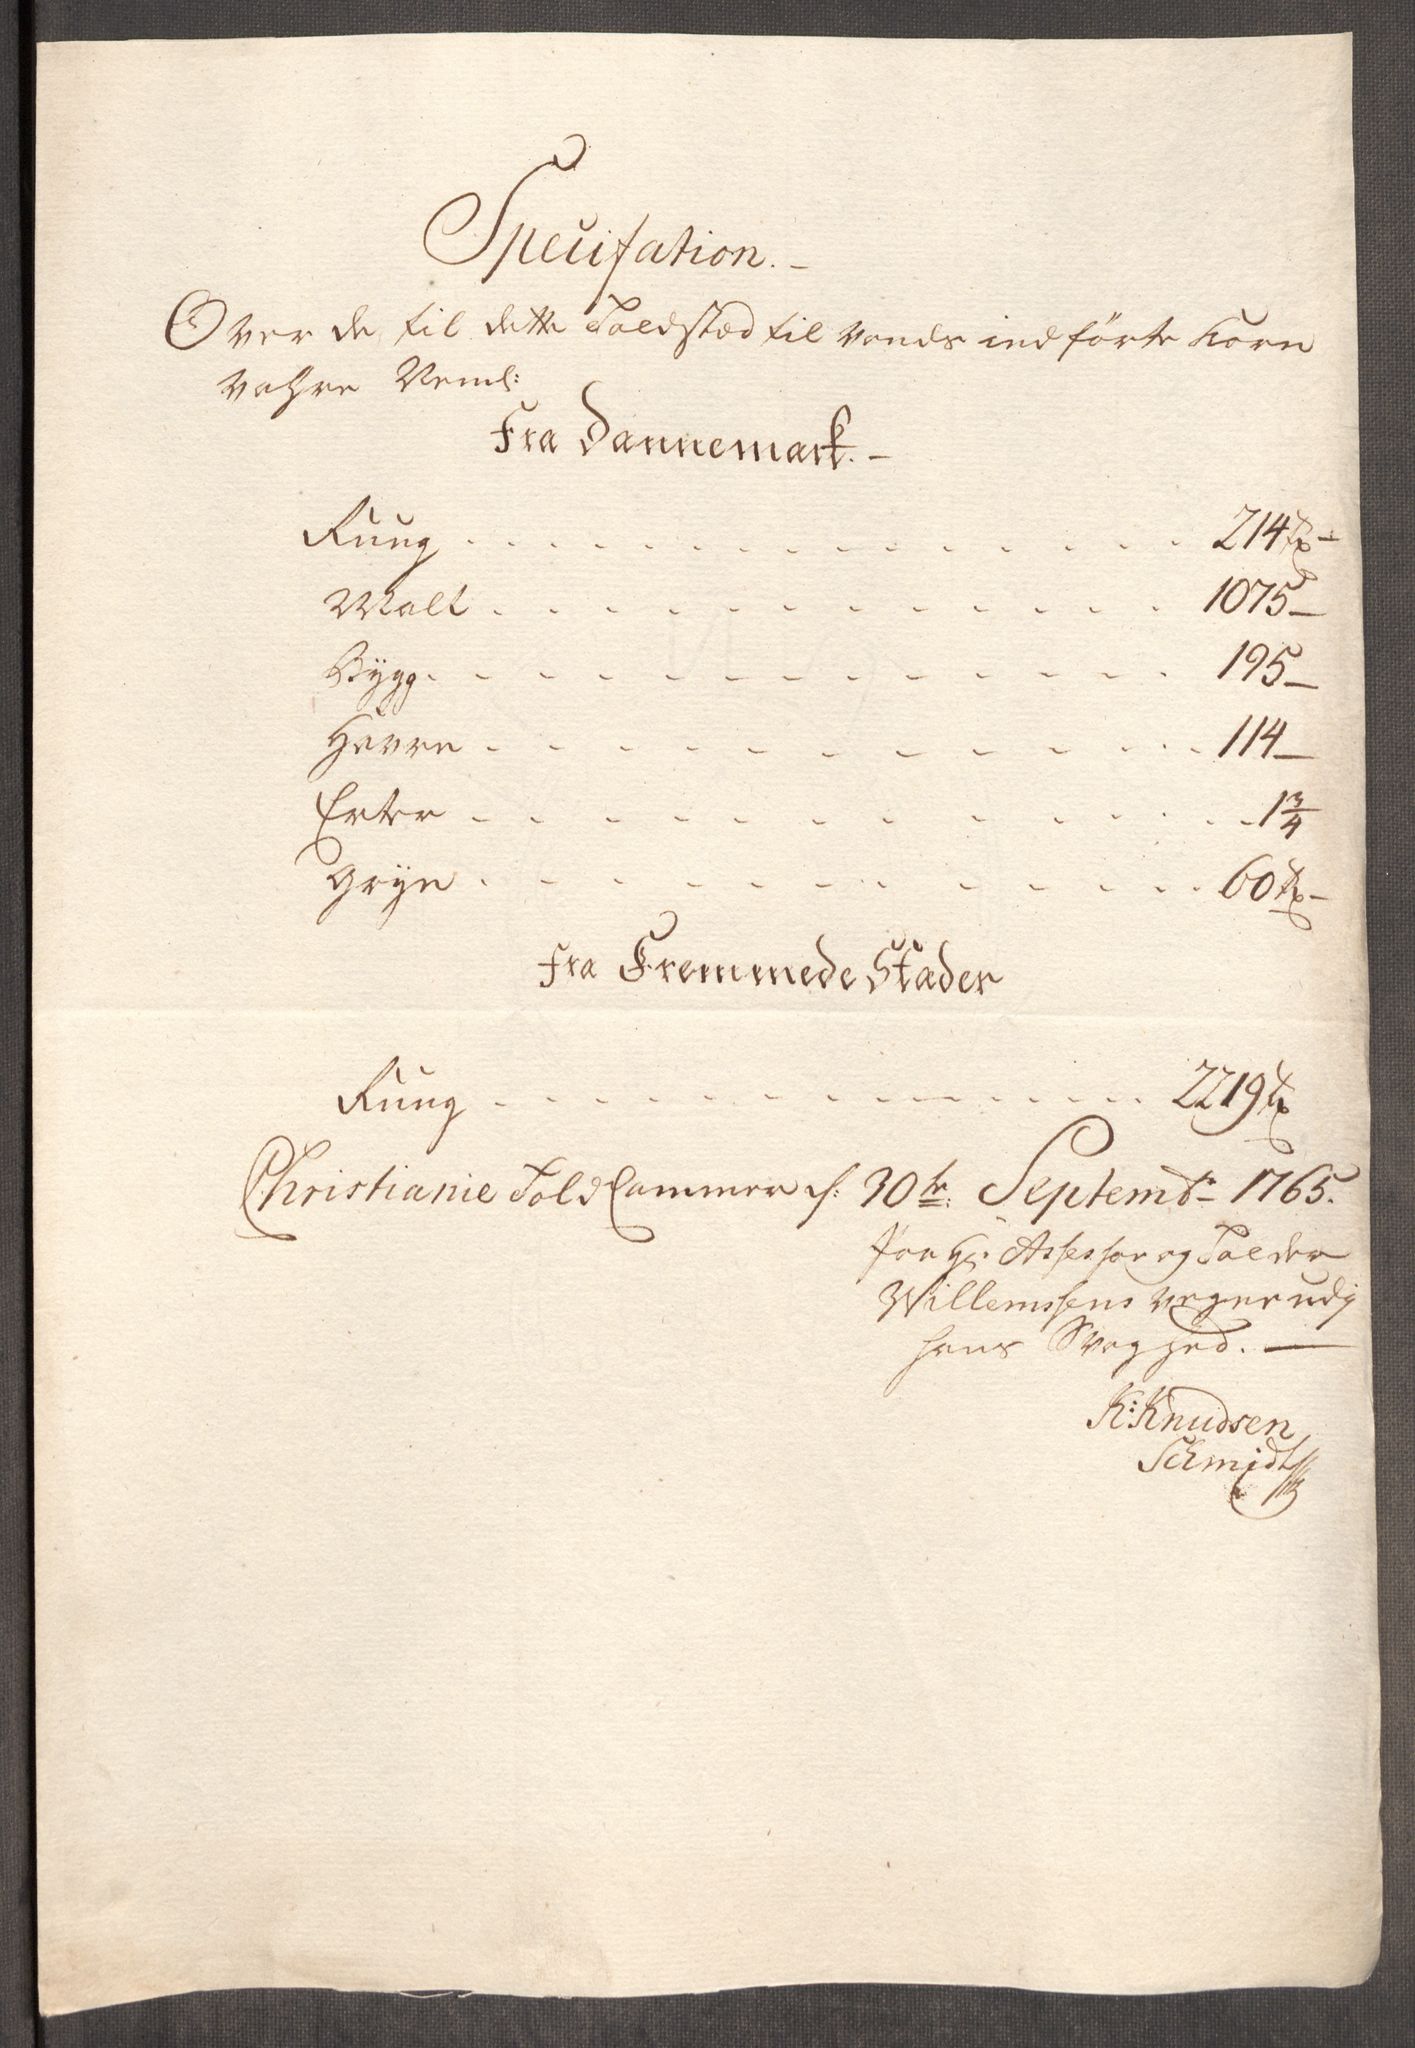 Specification.-
Over de til dette Toldstæd til Vands indförte Korn
Vahre Neml:
Fra Dannemark.-
Rúúg . . . . . . . . . . . . . . . 214 Tr -
Malt . . . . . . . . . . . . . 1075 -
Bygg . . . . . . . . . . . . . 195 -
Havre . . . . . . . . . . . . . 114 -
Erter . . . . . . . . . . . . . 1 3/4
Gryn . . . . . . . . . . . . . 60 Tr -
Fra Fremmede Stæder
Rúúg . . . . . . . . . . . . . . . 2219 Tr
Christianie Told Cammer d: 30te: Septembr 1765.
for Hr: Assessor og Tolder
Willemssens Vegne udj
hans Svaghed. —
K: Knudsen
Schmidt